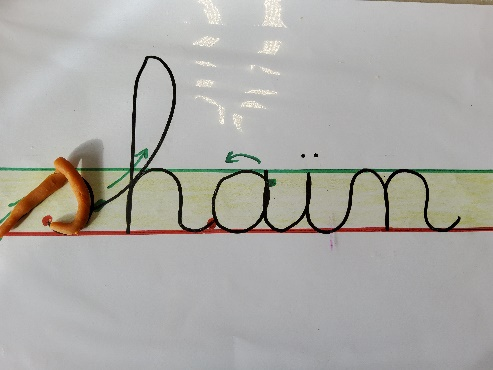 shaïn